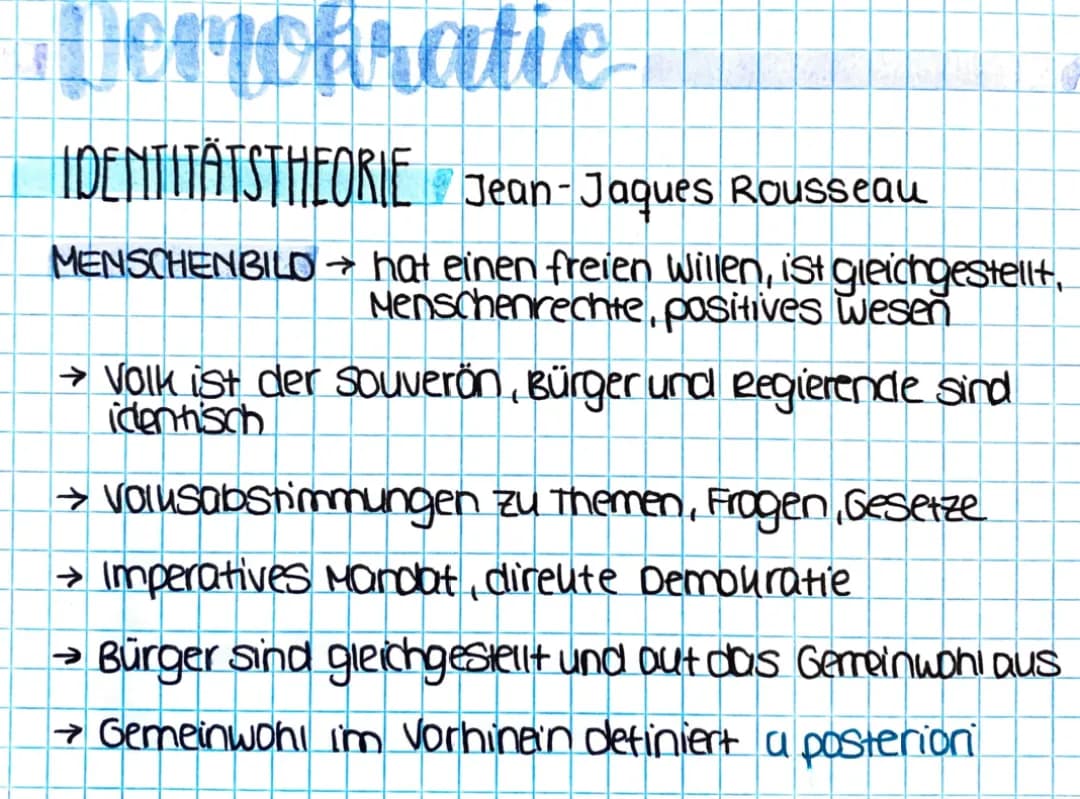 Demokratie
IDENTITÄTSTHEORIE Jean-Jaques Rousseau
MENSCHENBILD → hat einen freien Willen, ist gleichgestellt,
Menschenrechte, positives Wesen
→ Volk ist der Souverän, Bürger und Regierende sind
identisch
→ Volksabstimmungen zu Themen, Fragen, Gesetze
→ Imperatives Mandat, direkte Demokratie
→ Bürger sind gleichgestellt und auf das Gemeinwohl aus
→ Gemeinwohl im Vorhinein definiert a posteriori